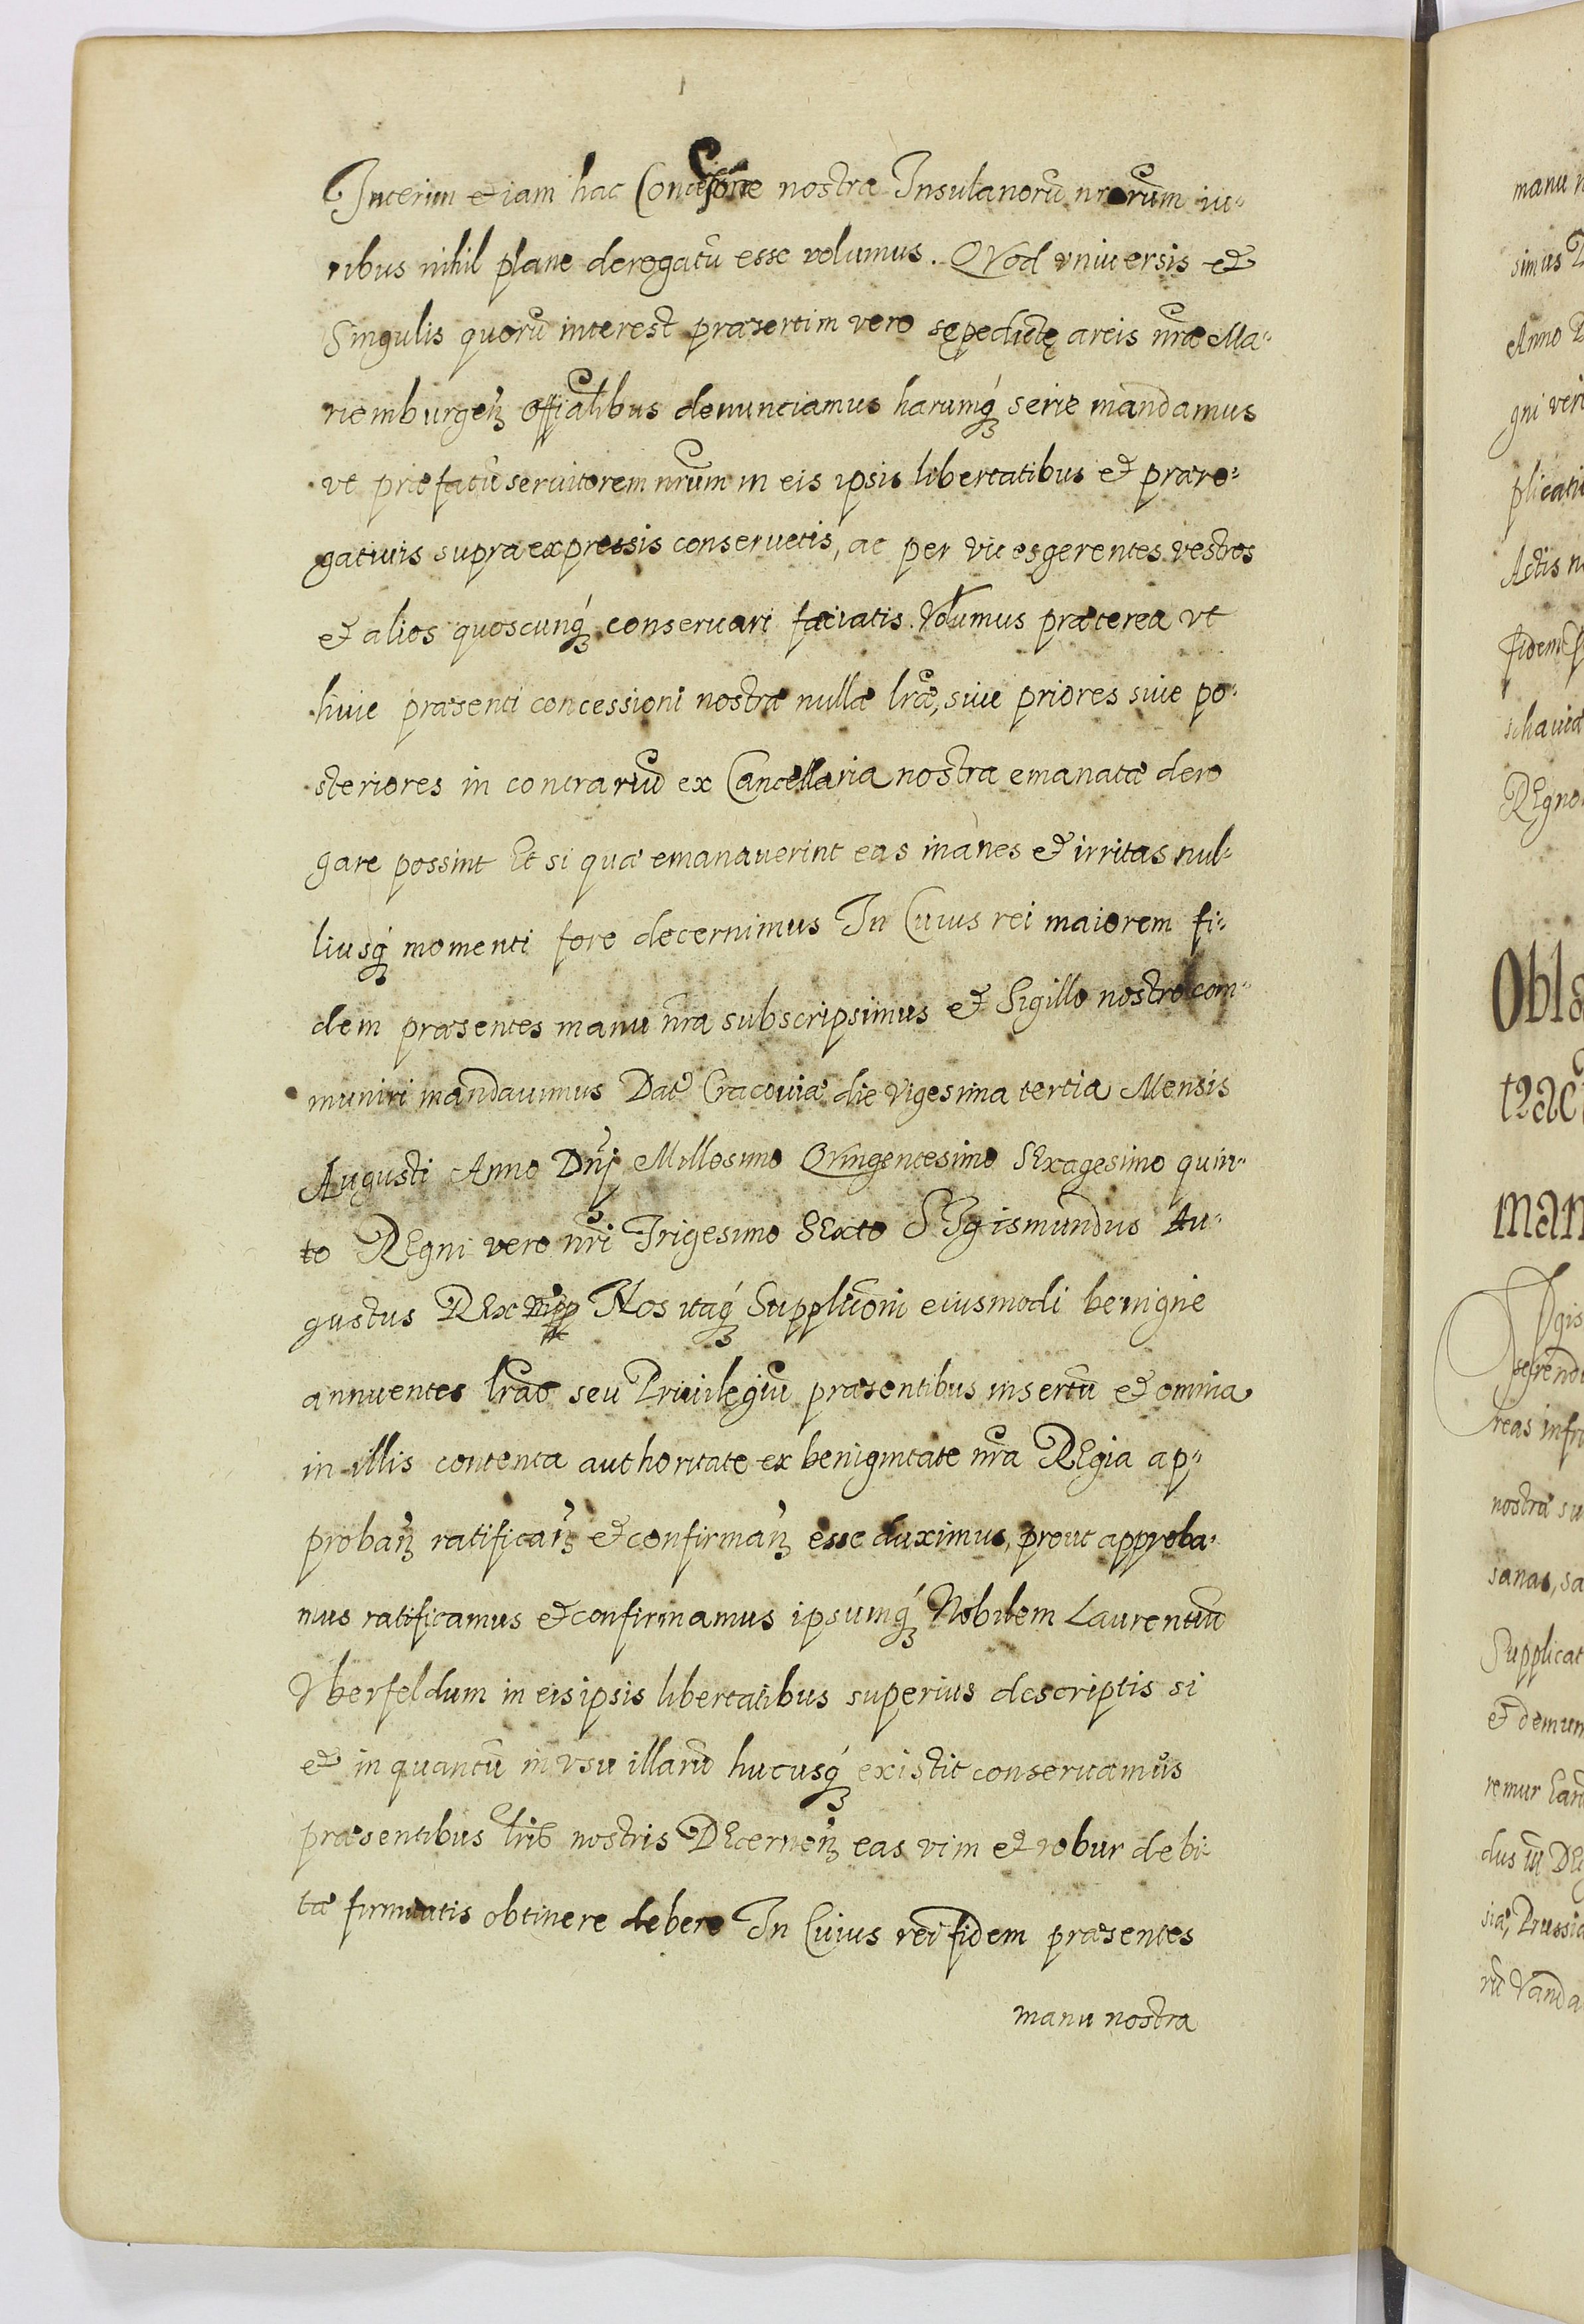 Interim etiam hac Concessione nostra Insulanorũ nrorum iu„
ribus nihil plane derogatũ esse volumus. QVod vniuersis et
Singulis quorũ interest præsertim vero sępedictę arcis nræ Ma„
riemburgeñ Offialibus denunciamus harumq́ serie mandamus
vt præfatũ seruitorem nrum in eis ipsis libertatibus et præro„
gatiuis supra expressis conseruetis, ac per vicesgerentes vestros
et alios quoscunq́ conseruari faciatis. Volumus præterea vt
huic præsenti concessioni nostræ nullæ lræ, siue priores siue po„
steriores in contrariũ ex Cancellaria nostra emanatæ dero
gare possint Et si quæ emanauerint eas inanes et irritas nul„
liusq́ momenti fore decernimus In Cuius rei maiorem fi„
dem præsentes manu nra subscripsimus et Sigillo nostro com„
muniri mandauimus Dat Cracouiæ die vigesima tertia Mensis
Augusti Anno Dnj Millesimo QVingentesimo SExagesimo quin„
to REgni vero nri Trigesimo SExto SIgismundus Au„
gustus REx Nos itaq́ Supplicõni eiusmodi benigne
annuentes lras seu Priuilegiũ præsentibus insertũ et omnia
in illis contenta authoritate ex benignitate nra REgia ap„
probañ ratificañ et confirmañ esse duximus, prout approba„
mus ratificamus et confirmamus ipsumq́ Nobilem Laurentiũ
Vberfeldum in eis ipsis libertatibus superius descriptis si
et in quantũ in vsu illarũ hucusq́ existit conseruamus
præsentibus lris nostris DEcerneñ eas vim et robur debi„
tæ firmitatis obtinere debere In Cuius rei fidem præsentes
manu nostra
manu
simus
Anno
gni
Actis
fidem
REgno
Obla
man
nostra
sanas,
Supplicat
et demum
remur
dus
Prussia
rũ Vanda